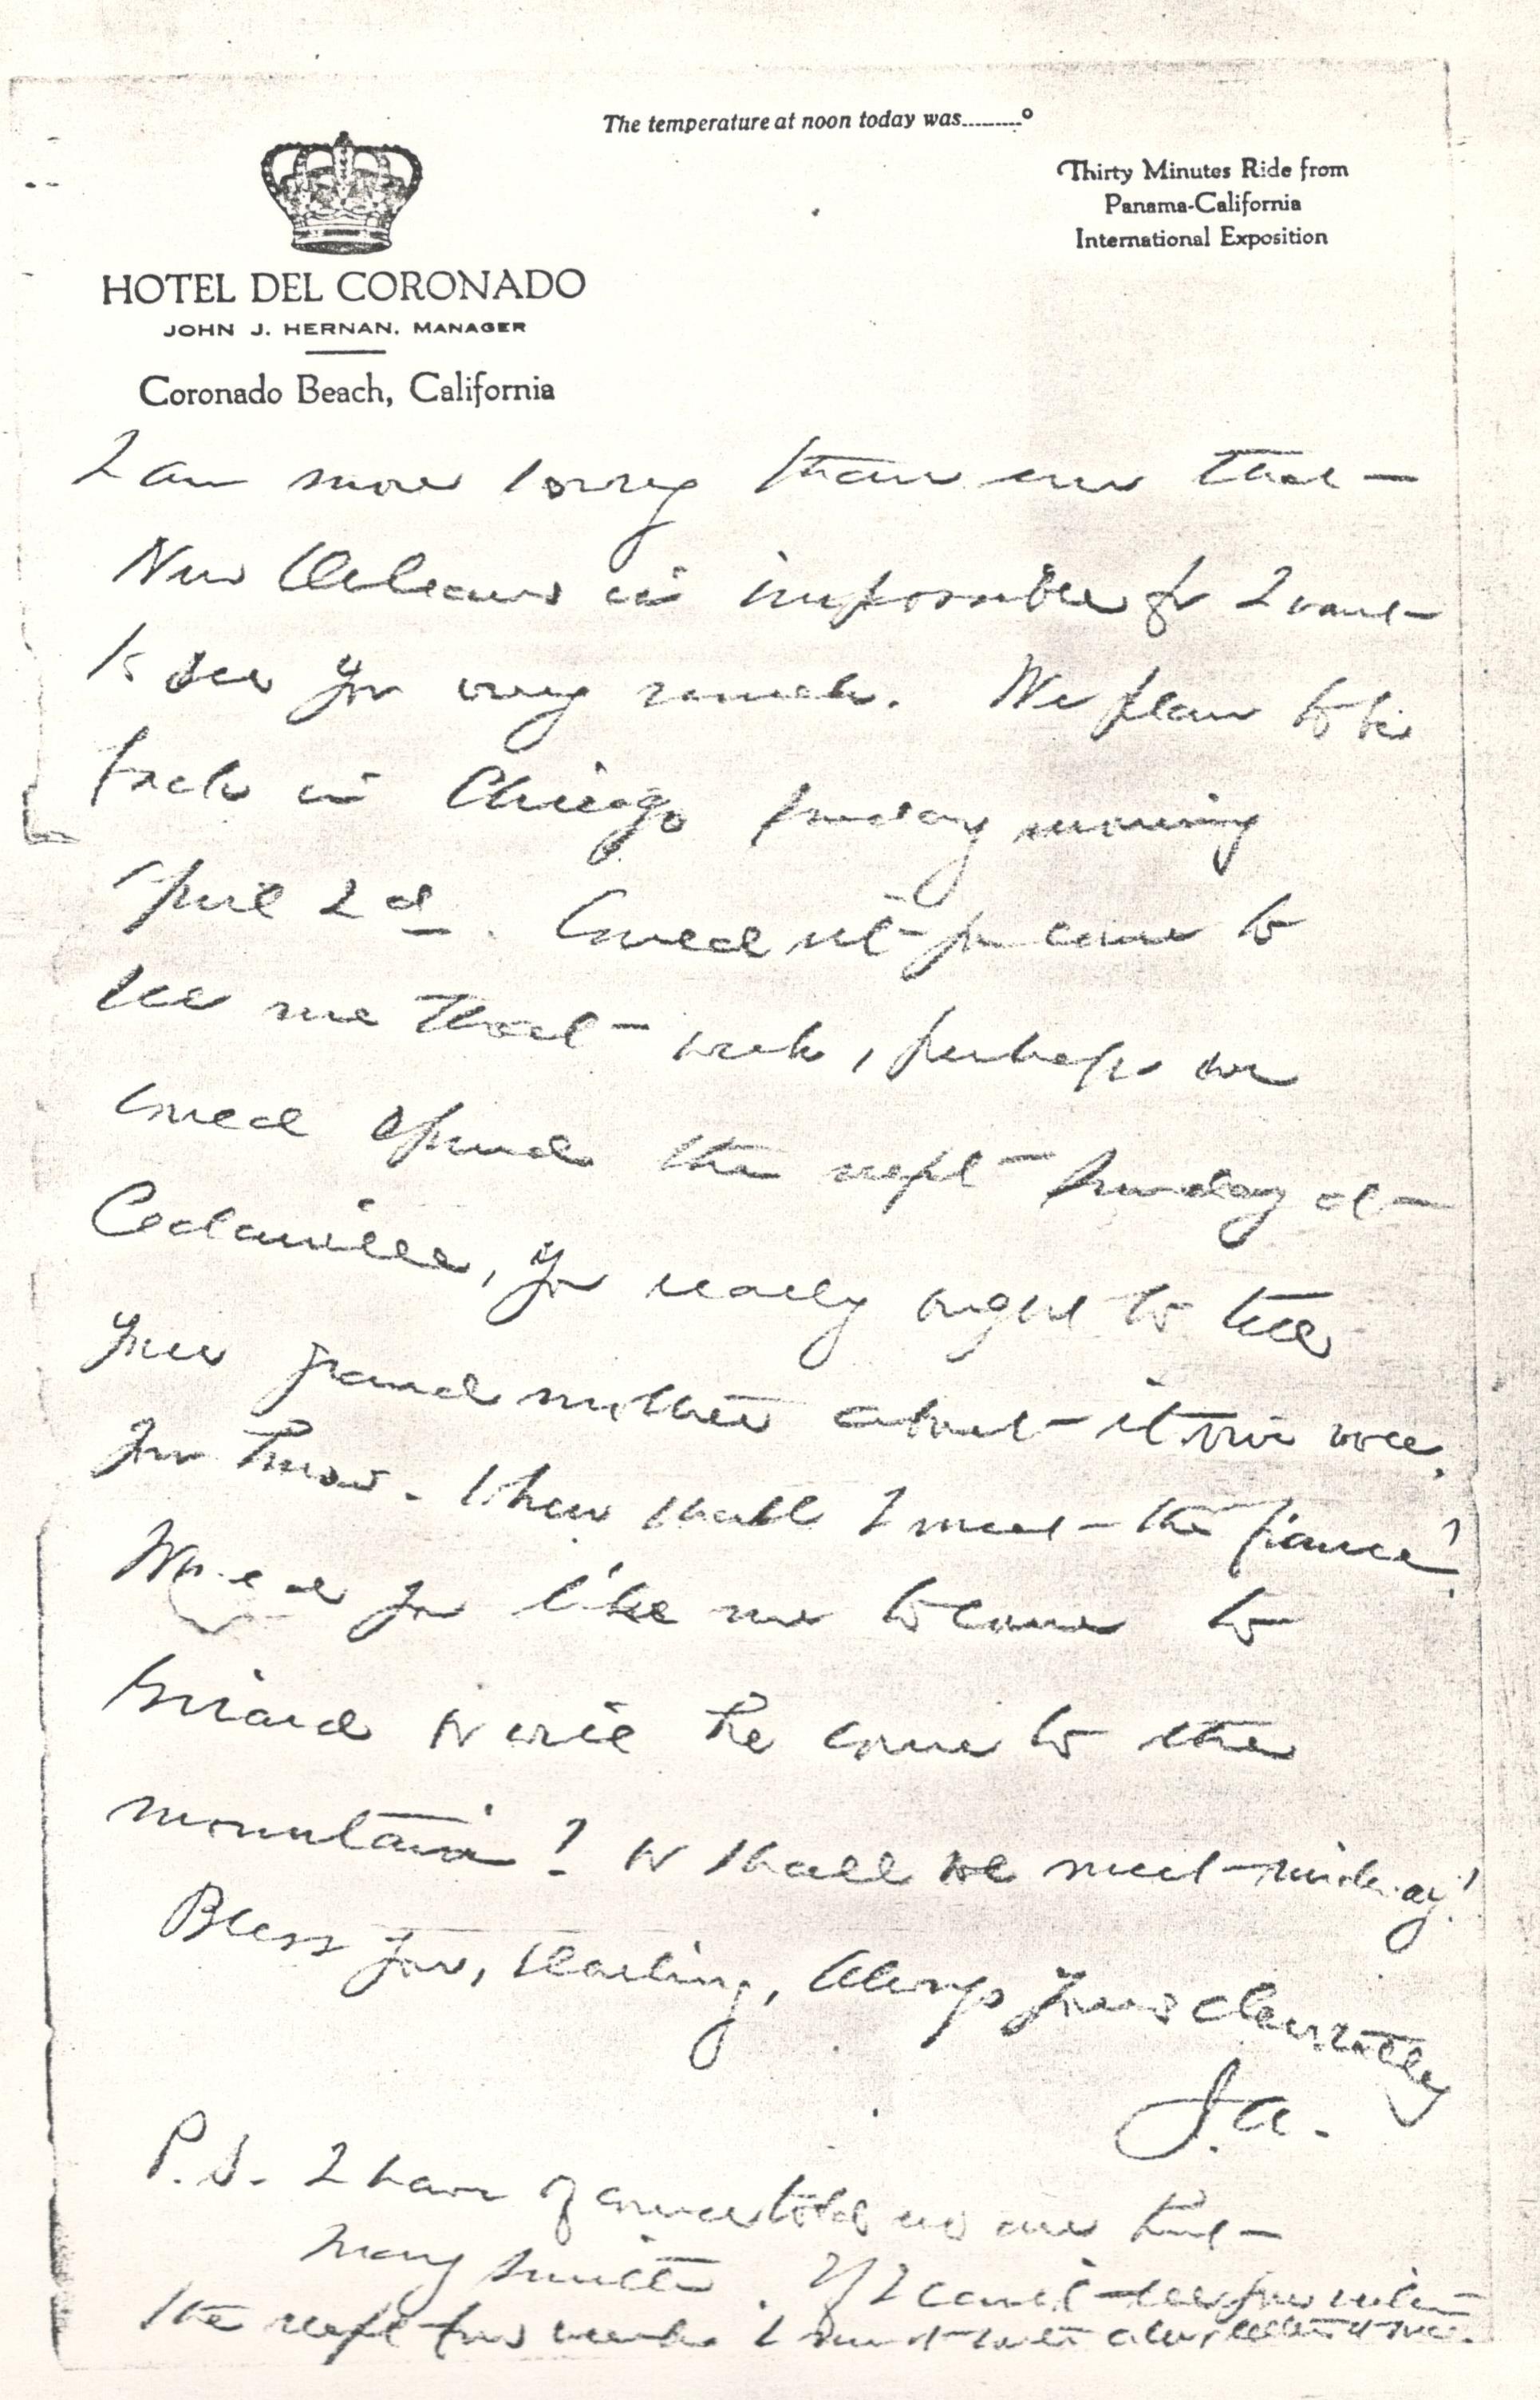 The temperature at noon today was.........°
Thirty Minutes Ride from
Panama-California
International Exposition
HOTEL DEL CORONADO
JOHN J. HERNAN, MANAGER
Coronado Beach, California
I am more sorry than ever that
New Orleans is impossible for I want
to see you very much. We plan to be
back in Chicago Sunday morning
April 2d. Could n't you come to
see me that week, perhaps we
could spend the next Sunday at
Cedarville, you really ought to tell
your grandmother about it viva voce,
you know. When shall I meet the fiancé?
Would you like me to come to
Girard or will he come to the
mountain? or shall we meet midway?
Bless you, darling, Always yours devotedly
J.A.
P.S. I have of course told no one but
Mary Smith. If I can't see you within
the next few weeks I must write a long letter